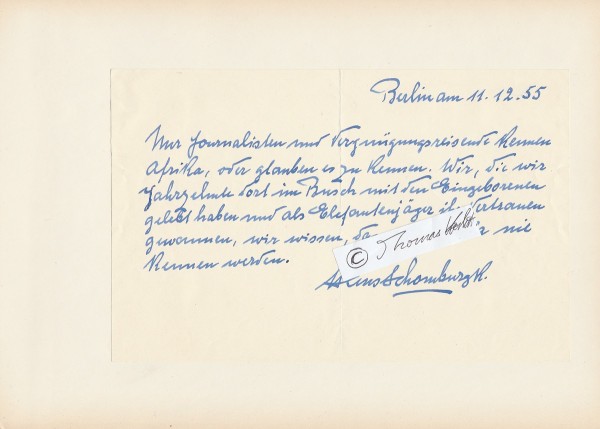 Berlin am 11.12.55
Nur Journalisten und Vergnügungsreisende kennen
Afrika, oder glauben es zu kennen. Wir, die wir
Jahrzehnte dort im Busch mit den Eingeborenen
gelebt haben und als Elefantenjäger ih Vertrauen
gewannen, wir wissen, da r nie
kennen werden.
© Thomas
Hans Schomburgk.